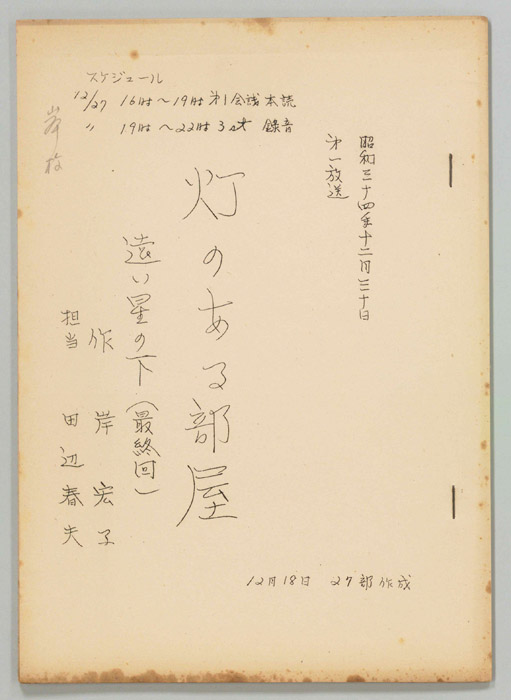 スケジュール
12/27 16時～19時 第1会議 本読
〃 19時～22時 3st 録音
昭和三十四年十二月三十日
第一放送
灯のある部屋
遠い星の下(最終回)
作 岸宏子
担当 田辺春夫
12月18日 27部作成